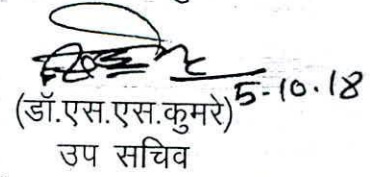 5-10-18
(डॉ.एस.एस.कुमरे)
उप सचिव